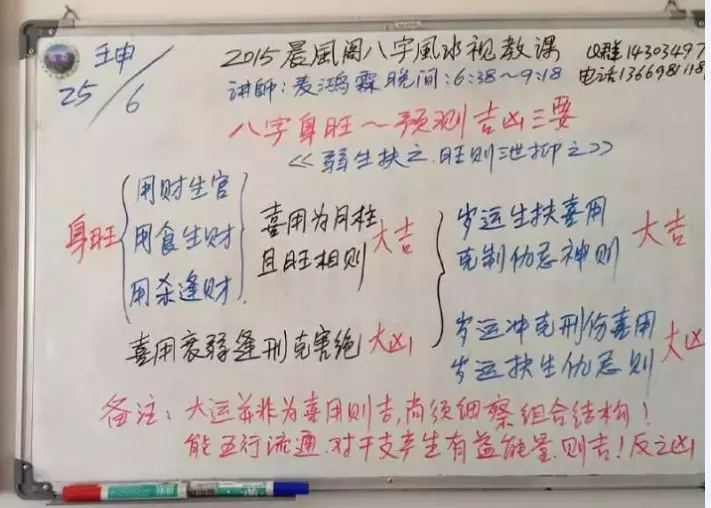 壬申
25/6
2015晨風阁八字風水视教课
Q群14303497
讲師:麦鸿霖 晚间:6:38~9:18
电话:1366981118
八字身旺~预测吉凶三要
<<弱生扶之.旺则泄抑之>>
身旺
用财生官
用食生财
用杀逢财.
喜用为月柱
且旺相则
大吉
喜用衰弱逢刑克害绝 大凶
岁运生扶喜用
克制仇忌神则
大吉
岁运冲克刑伤喜用
岁运扶生仇忌则
大凶
备注:大运并非为喜用则吉,尚须细察组合结构!
能五行流通.对干支产生有益能量.则吉!反之凶